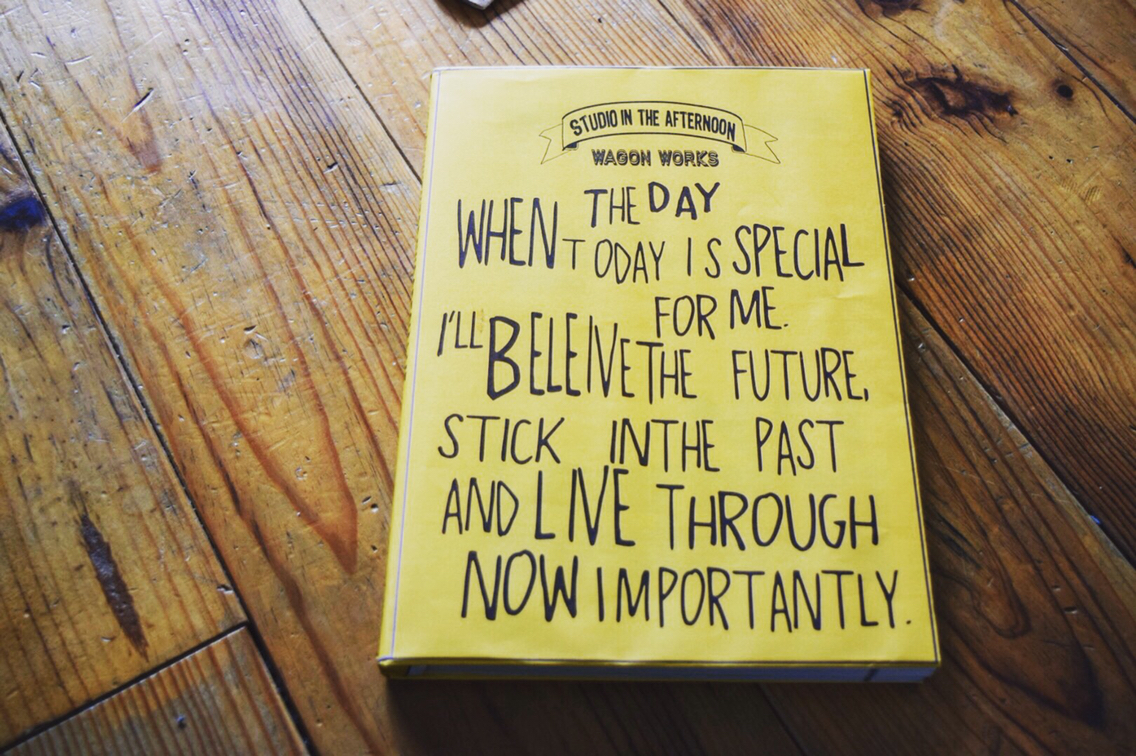 STUDIO IN THE AFTERNOON
WAGON WORKS
WHEN THE DAY
TODAY IS SPECIAL
FOR ME.
I'LL BELEIVE THE FUTURE,
STICK IN THE PAST
AND LIVE THROUGH
NOW IMPORTANTLY.